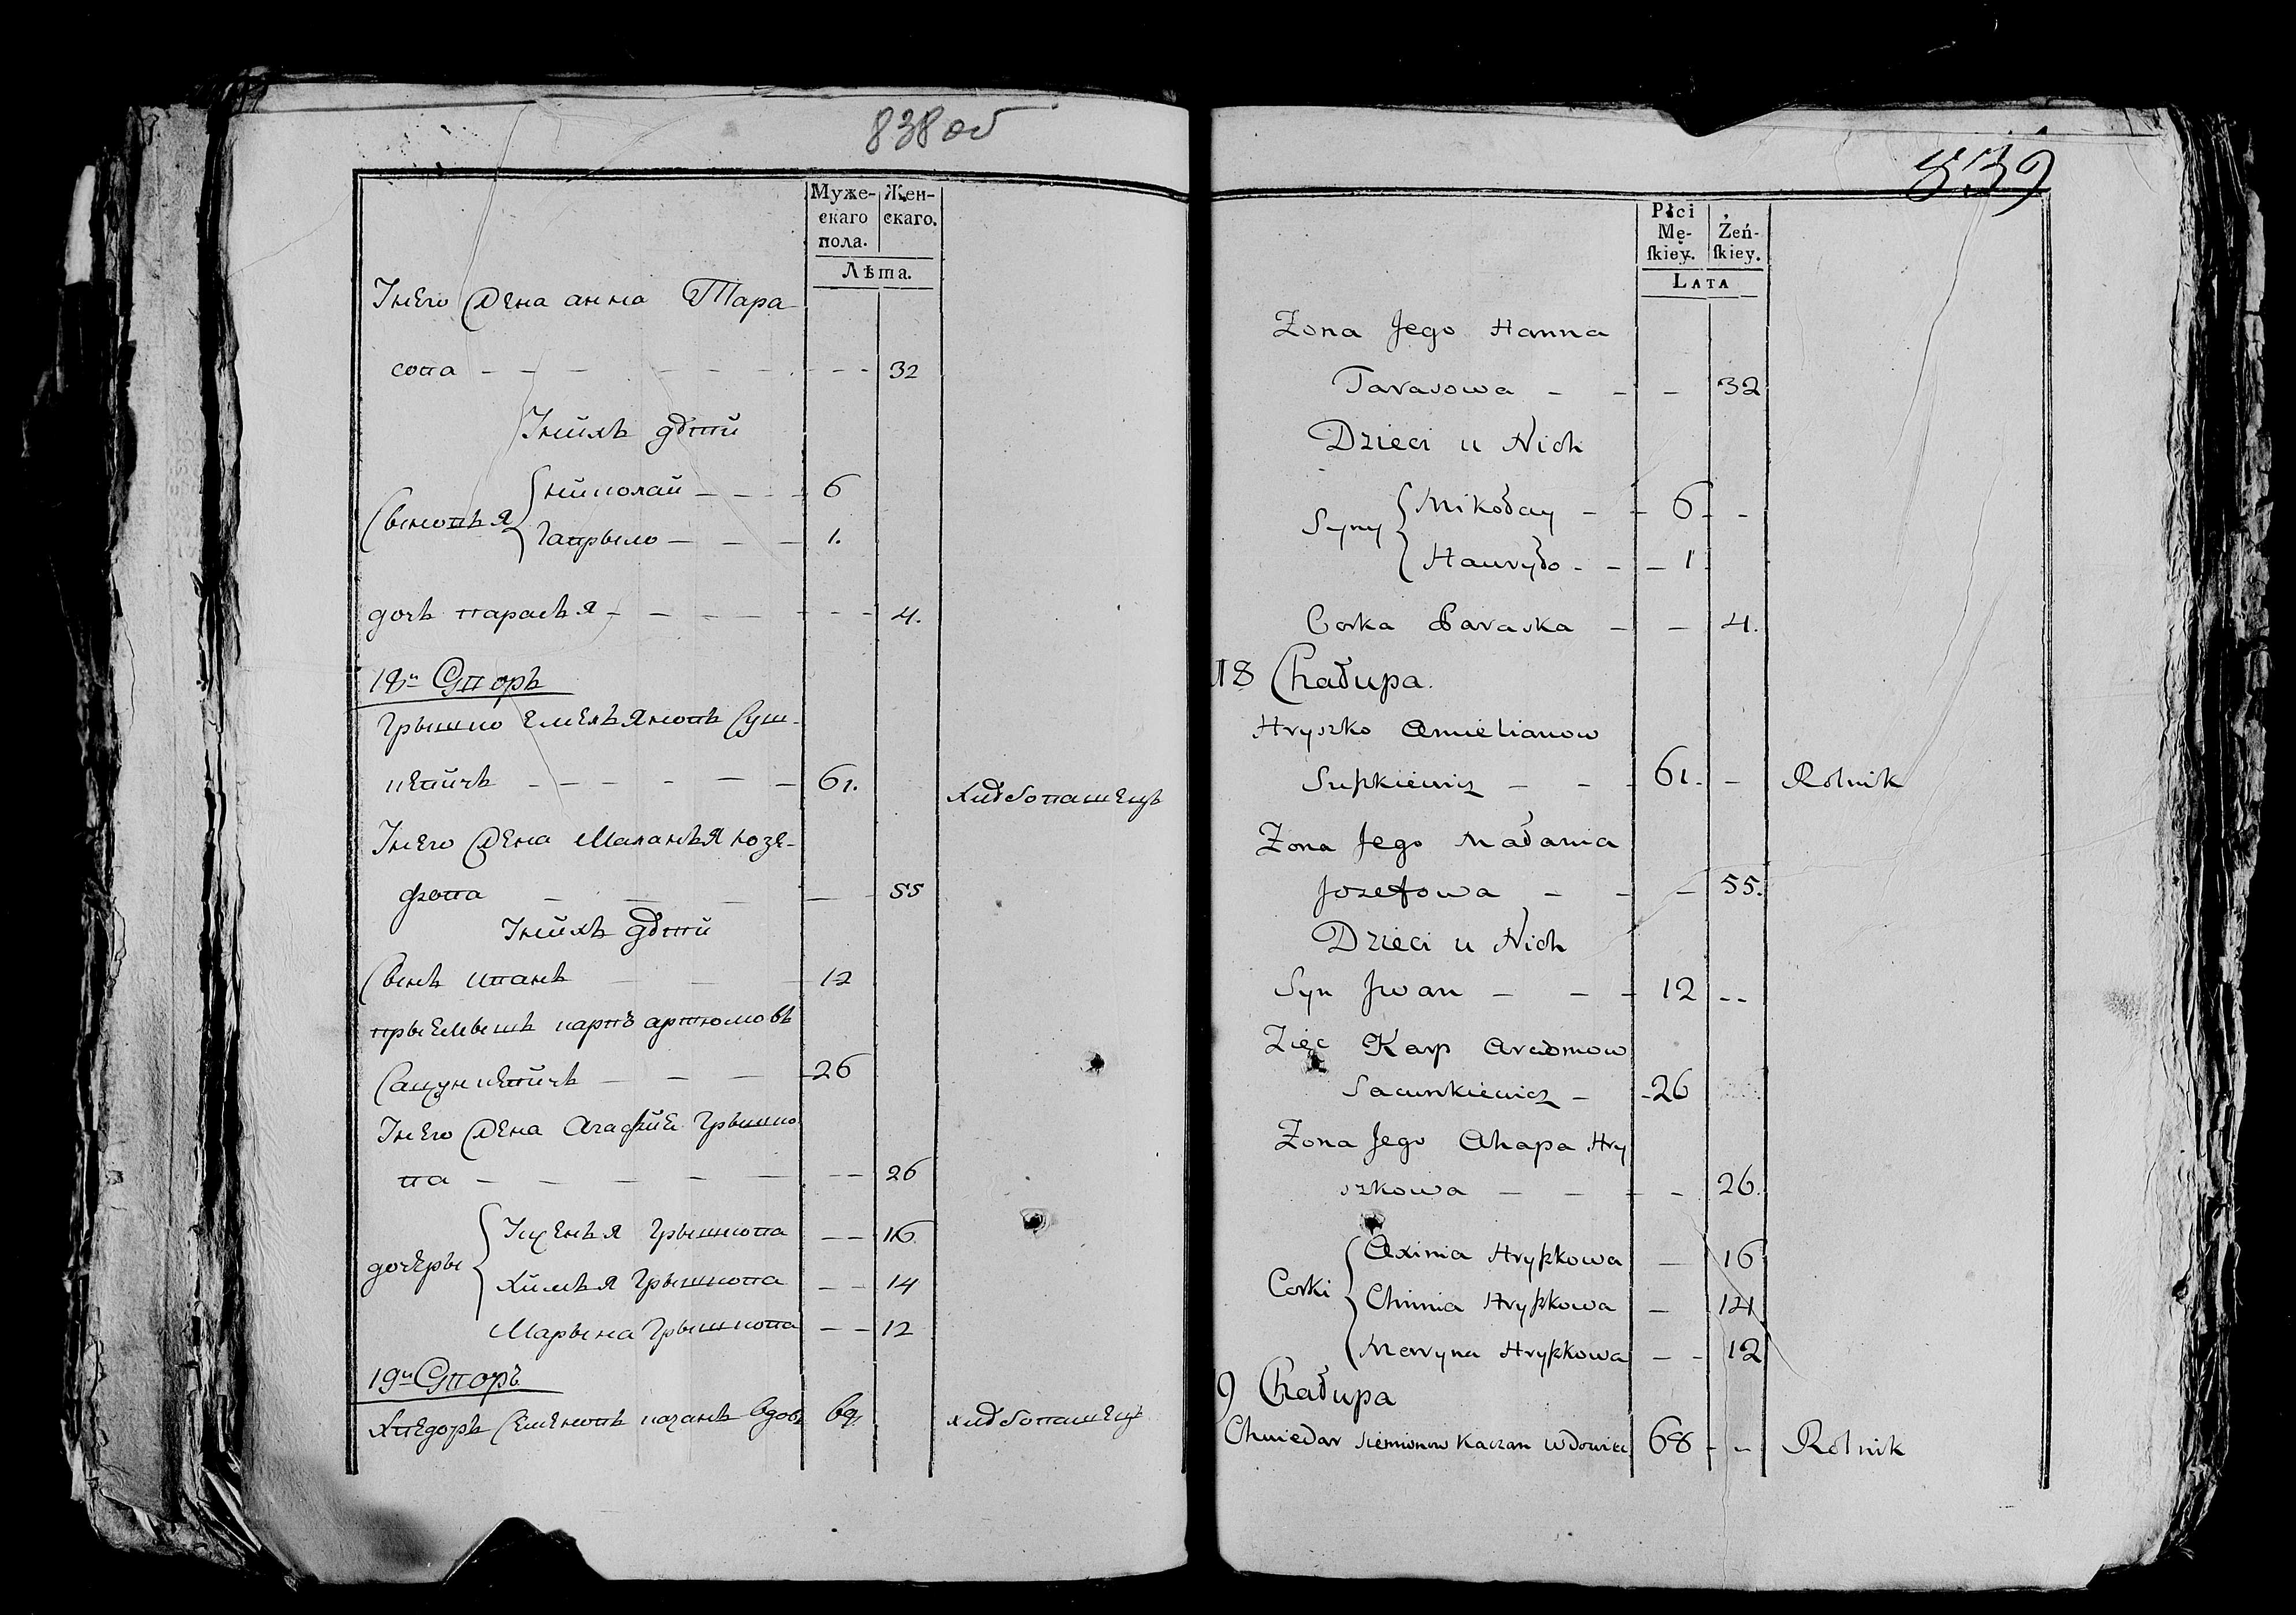 838 об
Муже- Жен-
скаго скаго.
пола.
Лѣта.
Інего жена анна Тара
сова - - - 32
Інихъ дѣти
Сыновья { николай - - - 6
Гаврыло - - - 1.
дочь парасья - - - 4.
18й Дворъ
Грышко Емельяновъ Суш-
кевичъ - - - 61. хлѣбопашецъ
Інего жена Маланья юзе-
фова - - - 55
Інихъ дѣти
Сынъ иванъ - - - 12
прыемышъ карпъ артюмовъ
Сацункевичъ - - - 26
Інего жена Агафия Грышко
ва - - - 26
дочеры { Грышкова - - 16
химья Грышкова - - 14
Марына Грышкова - - 12
19й Дворъ
хведоръ Семеновъ качанъ вдовъ хлѣбопашецъ
839
Płci Żeń-
Mę- skiey.
skiey.
LATA
Zona Jego Hanna
Tarasowa - - - 32
Dzieci u Nich
Syny { Mikołay - - 6 - -
Hawryło - - - 1
Corka Paraska - - 4.
18 Chałupa.
Hryszko Amielianow
Suszkiewicz - - 61. - Rolnik
Zona Jego Małania
Jozefowa - - - 55.
Dzieci u Nich
Syn Jwan - - - 12 - -
Zięc Karp Arciomow
Sacunkiewicz - - 26
Zona Jego Ahapa Hry
szkowa - - - - 26.
Corki { Axinia Hryszkowa - 16
Chimia Hryszkowa - 14
Marryna Hryszkowa - - 12
9 Chałupa
Chwiedar Siemionow Kaczan Wdowiec 68 - - Rolnik